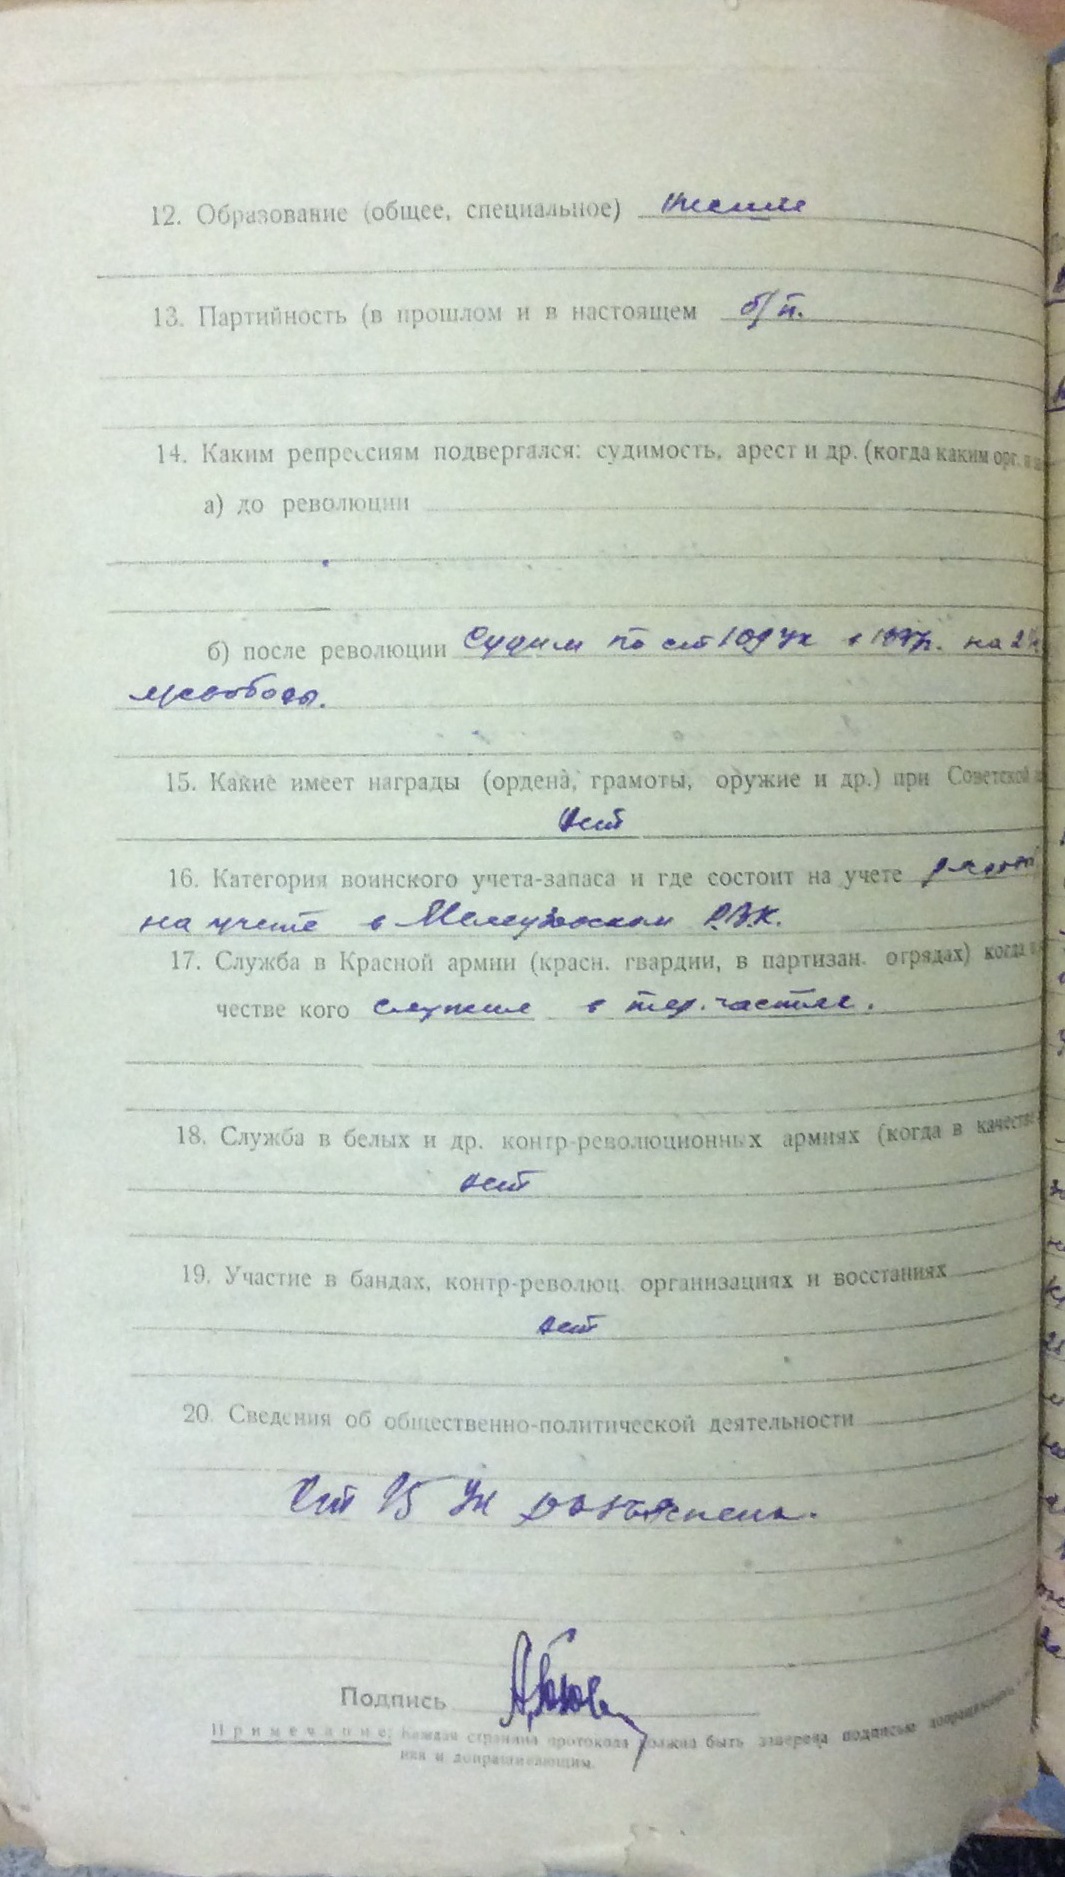 12. Образование (общее, специальное) низшее
13. Партийность (в прошлом и в настоящем б/п.
14. Каким репрессиям подвергался: судимость, арест и др. (когда каким орг.
а) до революции
б) после революции Судим по ст 109 УК в на 2
лишсвободы.
15. Какие имеет награды (ордена, грамоты, оружие и др.) при Советской
нет
16. Категория воинского учета-запаса и где состоит на учете
на учете в Мелеузовском Р.В.К.
17. Служба в Красной армии (красн. гвардии, в партизан. отрядах) когда
честве кого служил в тер. частях.
18. Служба в белых и др. контр-революционных армиях (когда в качестве
нет
19. Участие в бандах, контр-революц. организациях и восстаниях
нет
20. Сведения об общественно-политической деятельности
Ст 95 УК разъяснена.
Подпись
Примечание: Каждая страница протокола должна быть заверена подписью допрашиваемо
ния и допрашивающим.